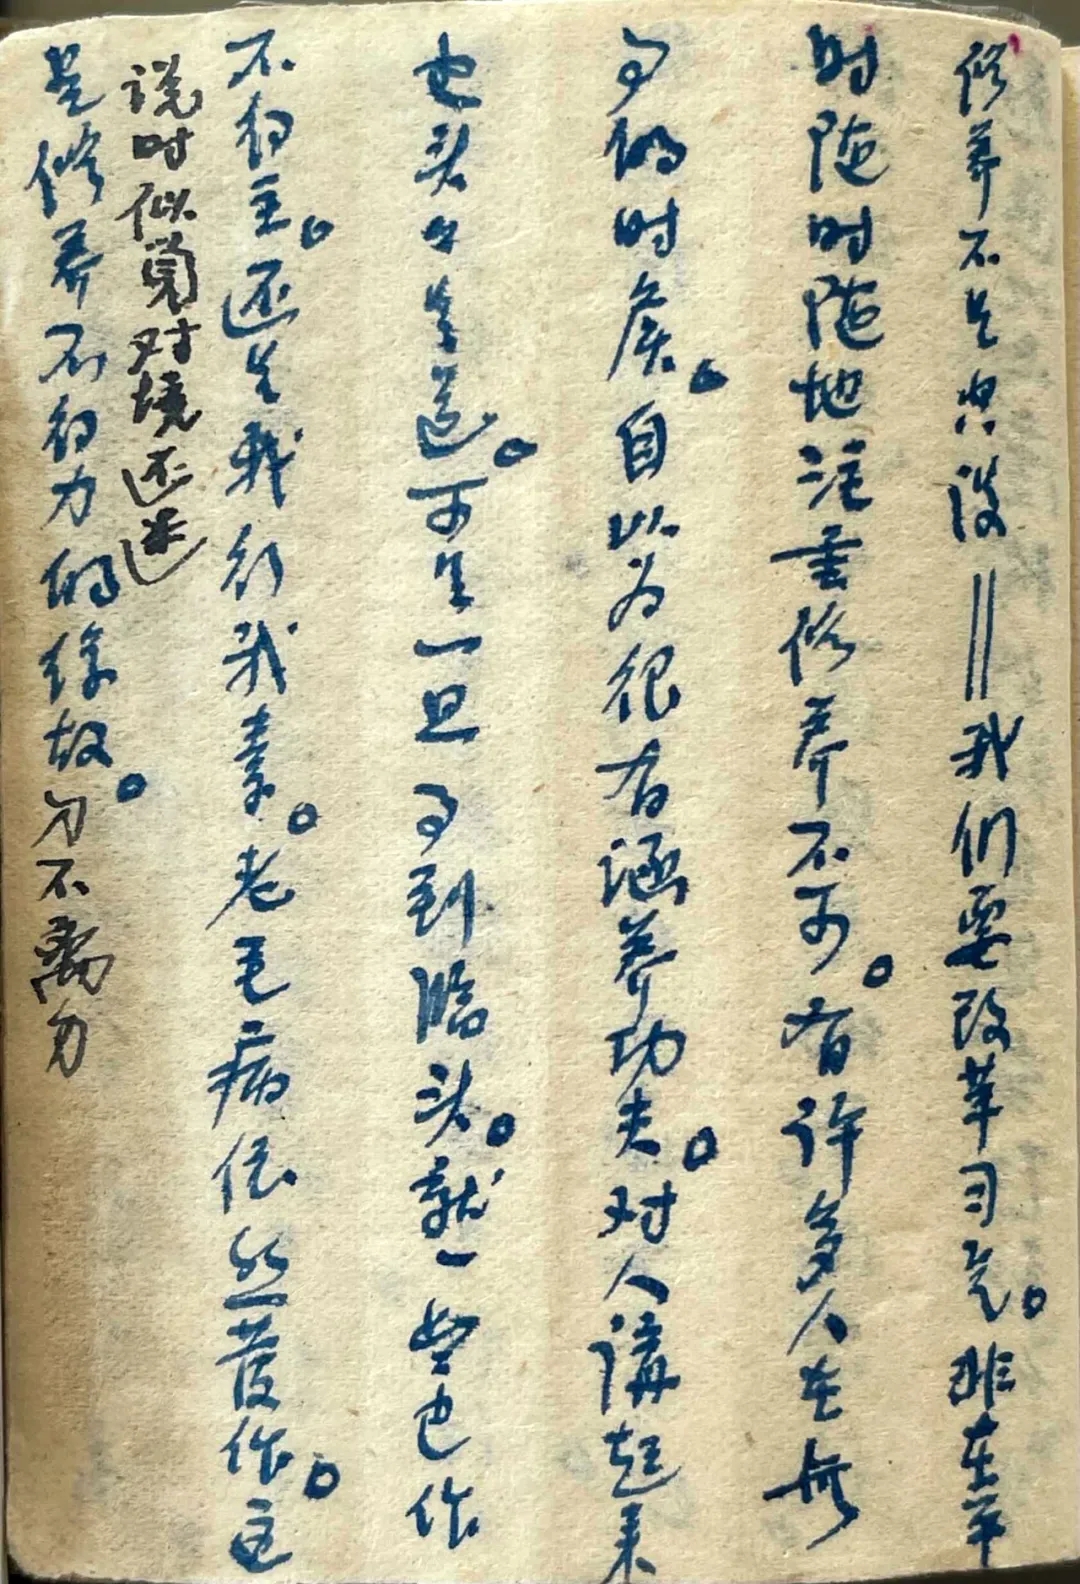 修养不是空谈||我们要改革习气。非在平
时随时随地注重修养不可。有许多人在無
事的时候。自以为很有涵养功夫。对人講起来
也头头是道。可是一旦事到臨头。就一点也作
不得主。还是我行我素。老毛病依然發作。这
说时似觉对境还迷
是修养不得力的缘故。勿不离勿